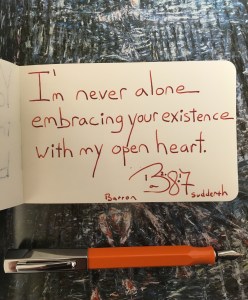 I'm never alone
embracing your existence
with my open heart.
Barron Suddenth